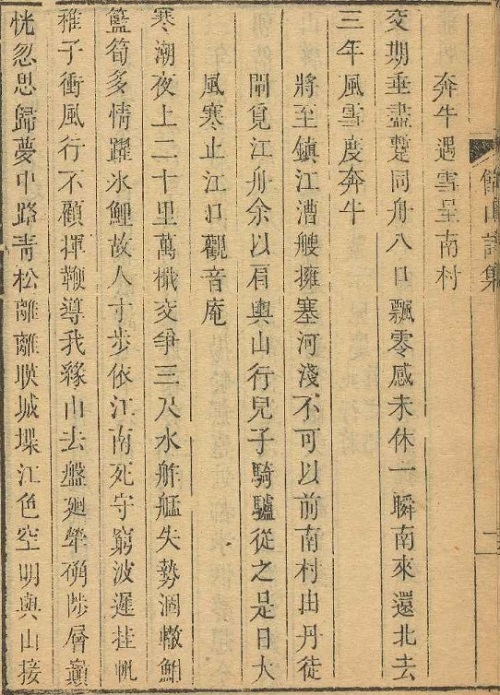 飴山詩集
奔牛遇雪呈南村
交期垂盡蹔同舟八口飄零感未休一瞬南來還北去
三年風雪度奔牛
將至鎮江漕艘擁塞河淺不可以前南村由丹徒
閘覓江舟余以肩輿山行兒子騎驢從之是日大
風寒止江口觀音庵
寒潮夜上二十里萬檝交爭三尺水舴艋失勢涸轍鮒
籃筍多情躍氷鯉故人寸步依江南死守窮波遲挂帆
稚子衝風行不顧揮鞭導我緣山去盤廻犖确陟層巔
恍忽思歸夢中路青松離離暎城堞江色空明與山接